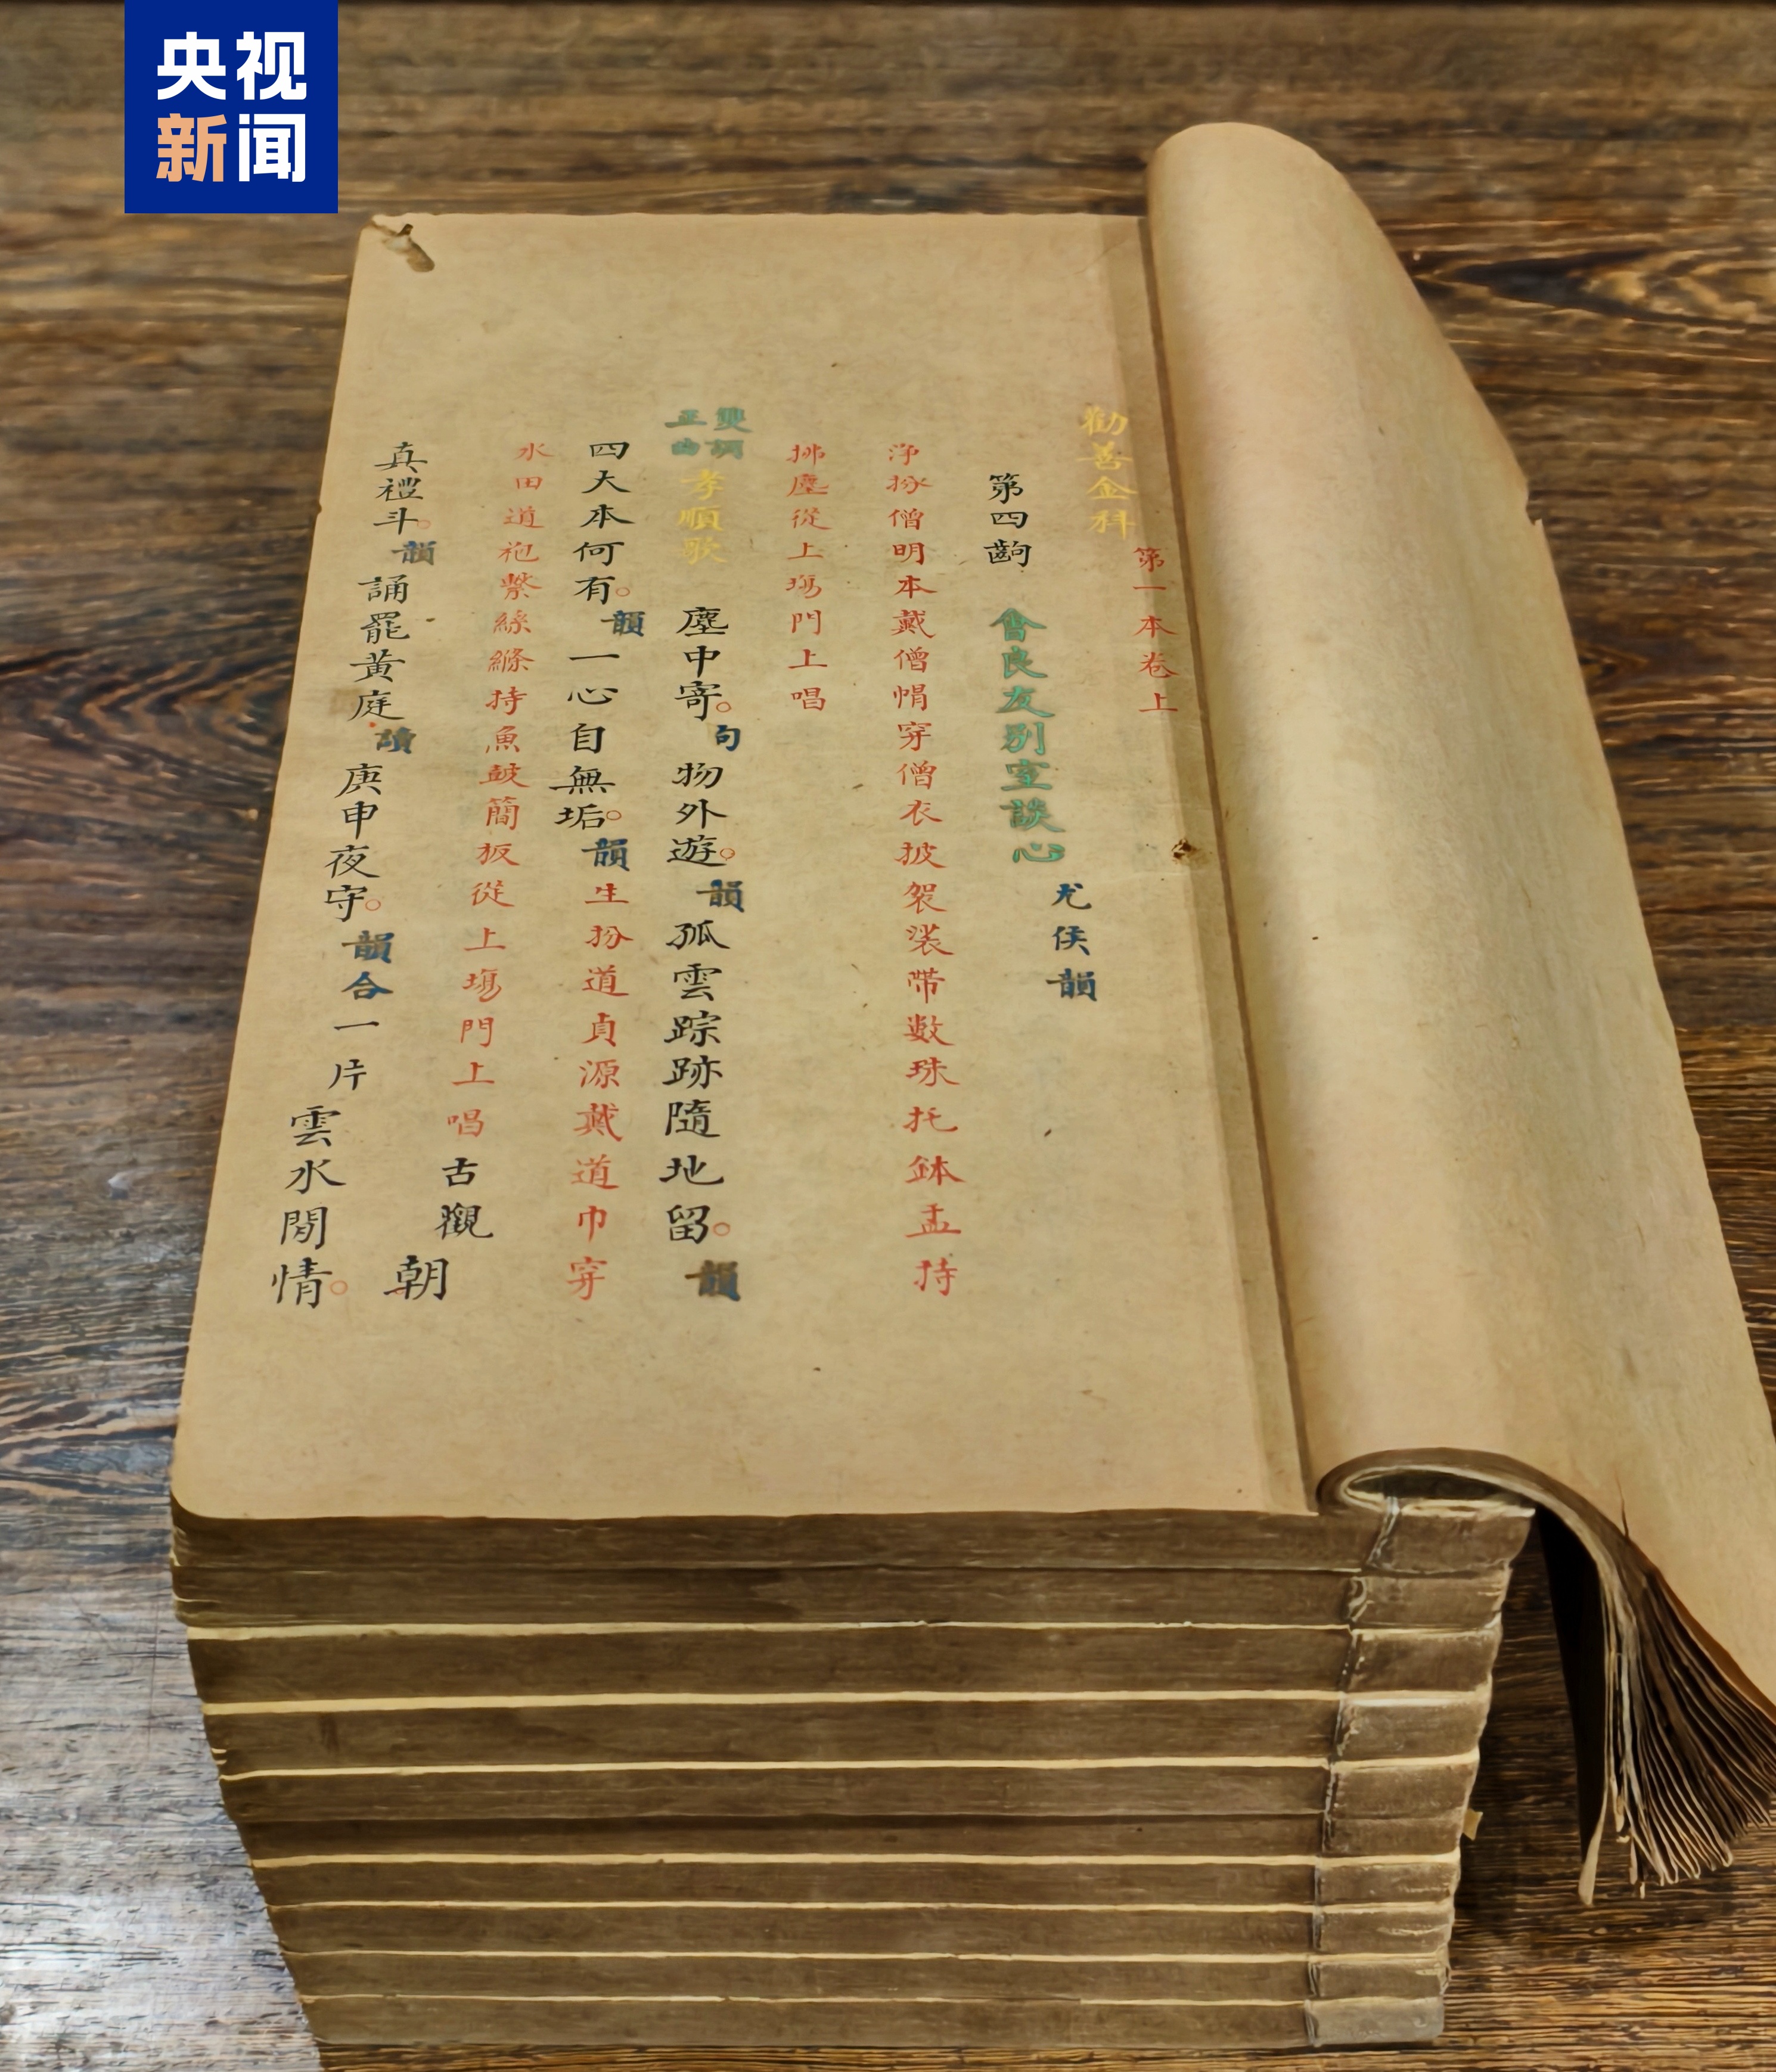 央视
新闻
勸善金科 第一本卷上
第四齣 會良友別室談心 尤侯韻
淨扮僧明本戴僧帽穿僧衣披袈裟帶數珠托鉢盂持
拂塵從上塲門上唱
雙調
正曲
孝順歌 塵中寄。句物外遊。韻孤雲踪跡隨地留。韻
四大本何有。韻一心自無垢。韻生扮道貞源戴道巾穿
水田道袍繫絲縧持魚鼓簡板從上塲門上唱古觀朝
真禮斗。韻誦罷黃庭讀庚申夜守。韻合一片雲水閒情。